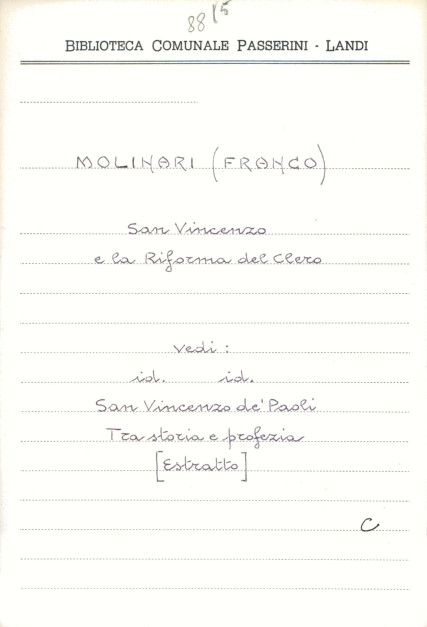 88 15
BIBLIOTECA COMUNALE PASSERINI - LANDI
MOLINARI (FRANCO)
San Vincenzo
e la Riforma del Clero
Vedi :
id. id.
San Vincenzo de' Paoli
Tra storia e profezia
[Estratto]
C